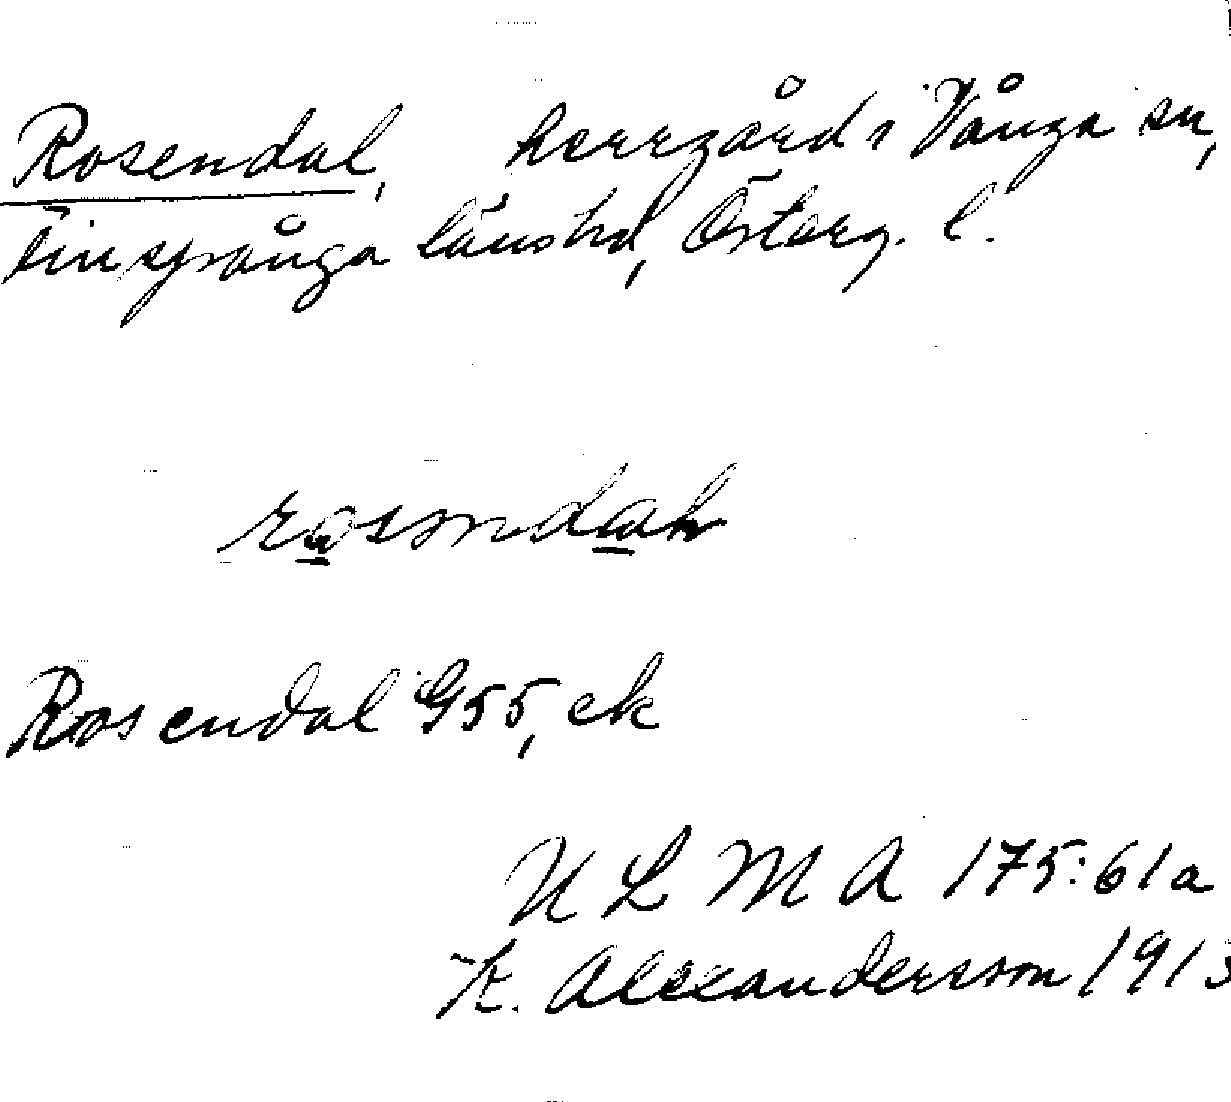 Rosendal, herrgård i Vånga sn,
Finspånga länshd, Österg. l.
rosendal
Rosendal G55, ek
U L M A 175:61a
K. Alexandersson 1913